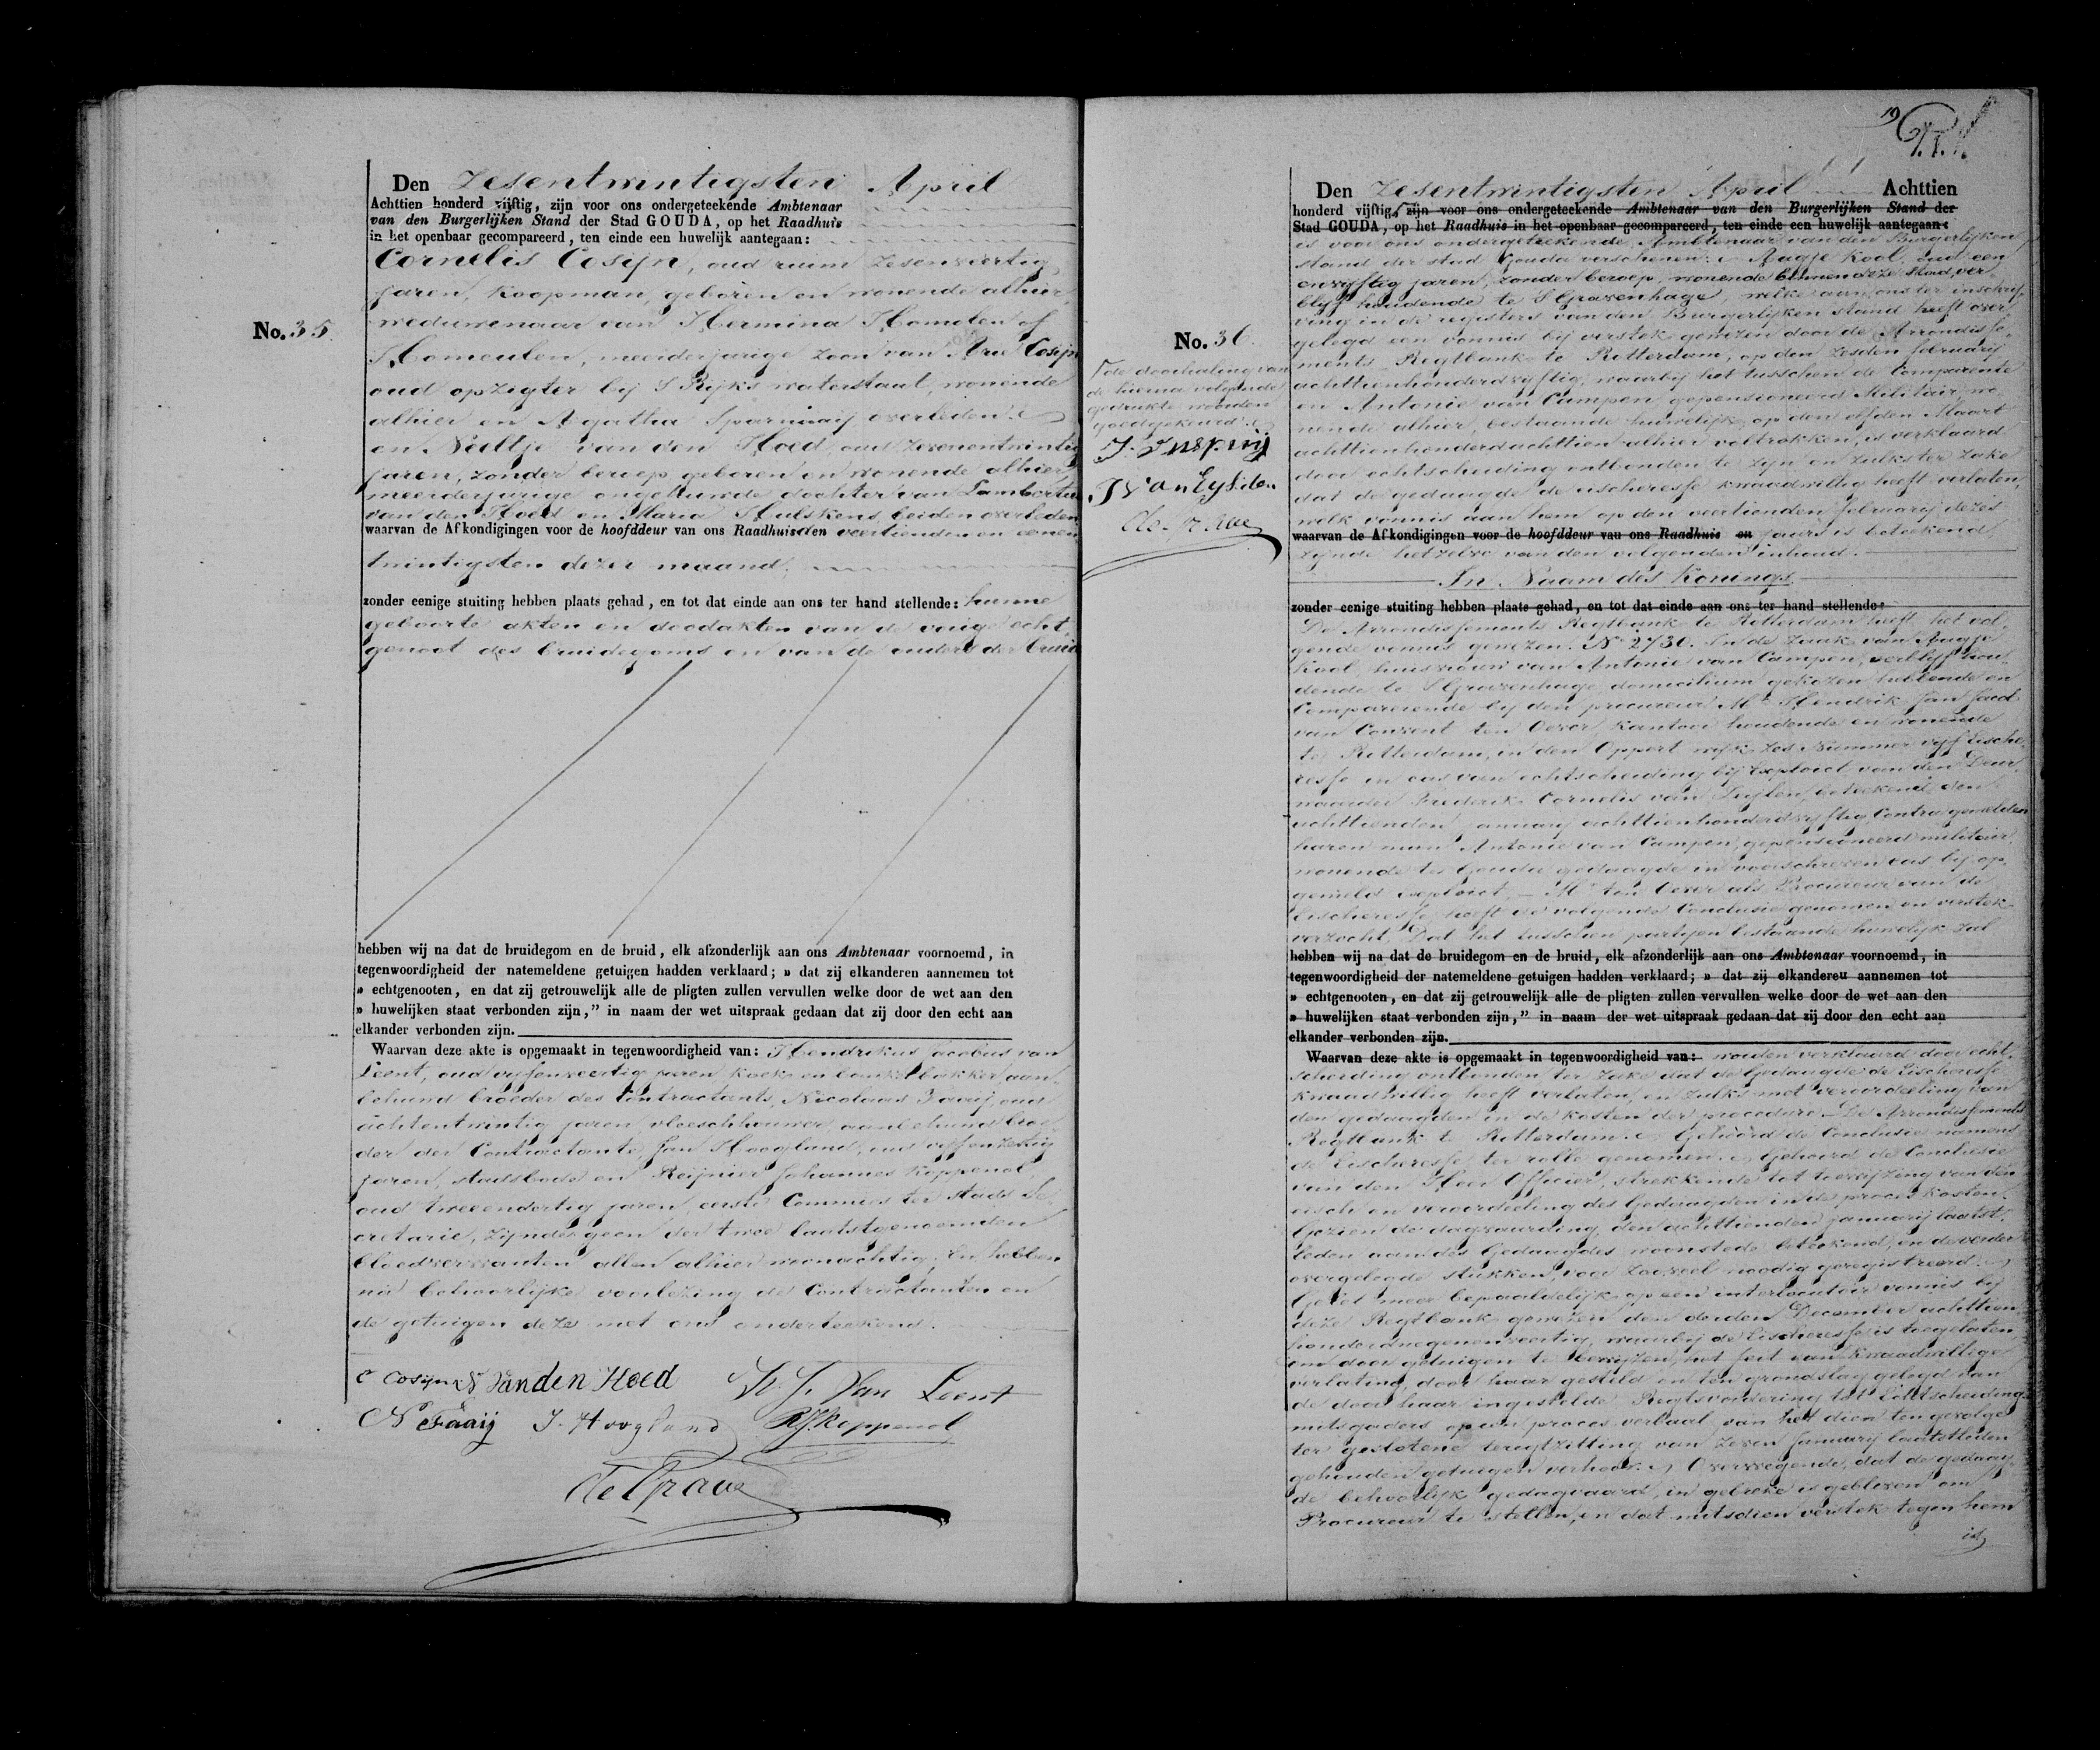 Den Zesentwintigsten April
Achttien honderd vijftig, zijn voor ons ondergeteekende Ambtenaar
van den Burgerlijken Stand der Stad GOUDA, op het Raadhuis
in het openbaar gecompareerd, ten einde een huwelijk aantegaan:
Cornelis Cosijn, oud ruim zesenveertig
jaren, koopman, geboren en wonende alhier,
weduwenaar van Hermina Homolen of
No. 35.
Homeulen, meerderjarige zoon van Arie Cosijn
oud opzigter bij S Rijks waterstaat, wonende
alhier en Agatha Sparnaaij overleden
en Neeltje van den Hoed, oud zevenentwintig
jaren, zonder beroep geboren en wonende alhier
meerderjarige ongehuwde dochter van Lambertus
van den Hoed en Maria Hulskens, beiden overleden
waarvan de Afkondigingen voor de hoofddeur van ons Raadhuis den veertienden en eenen
twintigsten dezer maand,
zonder eenige stuiting hebben plaats gehad, en tot dat einde aan ons ter hand stellende: hunne
geboorte akten en doodakten van de vorige echt
genoot des bruidegoms en van de ouders der bruid
hebben wij na dat de bruidegom en de bruid, elk afzonderlijk aan ons Ambtenaar voornoemd, in
tegenwoordigheid der natemeldene getuigen hadden verklaard; » dat zij elkanderen aannemen tot
» echtgenooten, en dat zij getrouwelijk alle de pligten zullen vervullen welke door de wet aan den
» huwelijken staat verbonden zijn,” in naam der wet uitspraak gedaan dat zij door den echt aan
elkander verbonden zijn.
Waarvan deze akte is opgemaakt in tegenwoordigheid van: Hendrikus Jacobus van
Leent, oud vijfenveertig jaren kok en banketbakker, aan-
behuwd broeder des Contractants, Nicolaas Faaij, oud
achtentwintig jaren vleeschhouwer, aanbehuwd broe-
der der Contractante, Jan Hoogland, oud vijfenzestig
jaren, stadsbode en Reijnier Johannes Koppenol,
oud tweeendertig jaren, eerste Commies ter stads Se-
cretarie, zijnde geen der twee laatstgenoemden
bloedverwanten allen alhier woonachtig, en hebben
na behoorlijke voorlezing de Contractanten en
de getuigen deze met ons onderteekend.
C Cosijn N van den Hoed H. J. Van Leent
N Faaij J. Hoogland RJKoppenol
de Grave
19
Den Zesentwintigsten April Achttien
honderd vijftig, zijn voor ons ondergeteekende Ambtenaar van den Burgerlijken Stand der
Stad GOUDA, op het Raadhuis in het openbaar gecompareerd, ten einde een huwelijk aantegaan:
is voor ons ondergeteekende Ambtenaar van den Burgerlijken
stand der stad Gouda verschenen: Aagje Kool, oud een
envijftig jaren, zonder beroep, wonende binnen deze stad, ver-
blijf houdende te S Gravenhage, welke aan ons ter inschrij-
ving in de registers van den Burgerlijken stand heeft over-
gelegd een vonnis bij verstek gewezen door de Arrondisse-
No. 36.
ments Regtbank te Rotterdam, op den zesden februarij
achttienhonderdvijftig, waarbij het tusschen de Comparente
en Antonie van Campen, gepensioneerd Militair, wo-
nende alhier, bestaande huwelijk, op den elfden Maart
achttienhonderdachttien alhier voltrokken, is verklaard
door echtscheiding ontbonden te zijn en zulks ter zake
dat de gedaagde de eischeresse kwaadwillig heeft verlaten,
welk vonnis aan hem op den veertienden februarij dezes
waarvan de Afkondigingen voor de hoofddeur van ons Raadhuis en jaars is beteekend
zijnde hetzelve van den volgenden inhoud.
de doorhaling van
de hierna volgende
gedrukte woorden
goedgekeurd.
de Grave
In Naam des Konings
zonder eenige stuiting hebben plaats gehad, en tot dat einde aan ons ter hand stellende:
De Arrondissements Regtbank te Rotterdam heeft het vol-
gende vonnis gewezen. No 2730. In de zaak van Aagje
Kool, huisvrouw van Antonie van Campen, verblijf hou-
dende te S Gravenhage, domicilium gekozen hebbende en
Comparerende bij den procureur Mr Hendrik Jan
van Convent ten Oever, kantoor houdende en wonende
te Rotterdam, in den Oppert wijk zes Nummer vijf Eische-
resse in cas van echtscheiding bij Exploict van den Deur-
waarder Frederik Cornelis van Luijten, beteekend den
achttienden januarij achttienhonderdvijftig, Contra gemelden
haren man Antonie van Campen, gepensioneerd militair
wonende te Gouda gedaagde in voorschreven cas bij op-
gemeld exploict, — Mr ten Oever als Procureur van de
Eischeresse, heeft de volgende Conclusie genomen en verstek
verzocht, Dat het tusschen partijen bestaande huwelijk zal
hebben wij na dat de bruidegom en de bruid, elk afzonderlijk aan ons Ambtenaar voornoemd, in
tegenwoordigheid der natemeldene getuigen hadden verklaard; » dat zij elkanderen aannemen tot
» echtgenooten, en dat zij getrouwelijk alle de pligten zullen vervullen welke door de wet aan den
» huwelijken staat verbonden zijn,” in naam der wet uitspraak gedaan dat zij door den echt aan
elkander verbonden zijn.
Waarvan deze akte is opgemaakt in tegenwoordigheid van: worden verklaard door echt-
scheiding ontbonden, ter zake dat de Gedaagde de Eischeresse
kwaadwillig heeft verlaten, en zulks met veroordeeling van
den gedaagden in de kosten der procedure. De Arrondissements
Regtbank te Rotterdam. Gehoord de Conclusie namens
de Eischeresse ter rolle genomen. Gehoord de Conclusie
van den Heer Officier, strekkende tot toewijzing van den
eisch en veroordeeling des Gedaagden in de proceskosten.
Gezien de dagvaarding, den achttienden januarij laatst-
leden aan des Gedaagdes woonstede beteekend, en de verder
overgelegde stukken, voor zooveel noodig geregistreerd.
Gelet meer bepaaldelijk op een interlocutoir vonnis bij
deze Regtbank gewezen den derden December achttien-
honderdnegenenveertig, waarbij de Eischeresse is toegelaten
om door getuigen te bewijzen, het feit van kwaadwillige
verlating, door haar gesteld en ten grondslag gelegd van
de door haar ingestelde Regtsvordering tot Echtscheiding
mitsgaders op een proces-verbaal van het dien ten gevolge
ter geslotene teregtzitting van zeven Januarij laatstleden
gehouden getuigen verhoor. Overwegende, dat de gedaag-
de behoorlijk gedagvaard, in gebreke is gebleven om
Procureur te stellen, en dat mitsdien verstek tegen hem
is